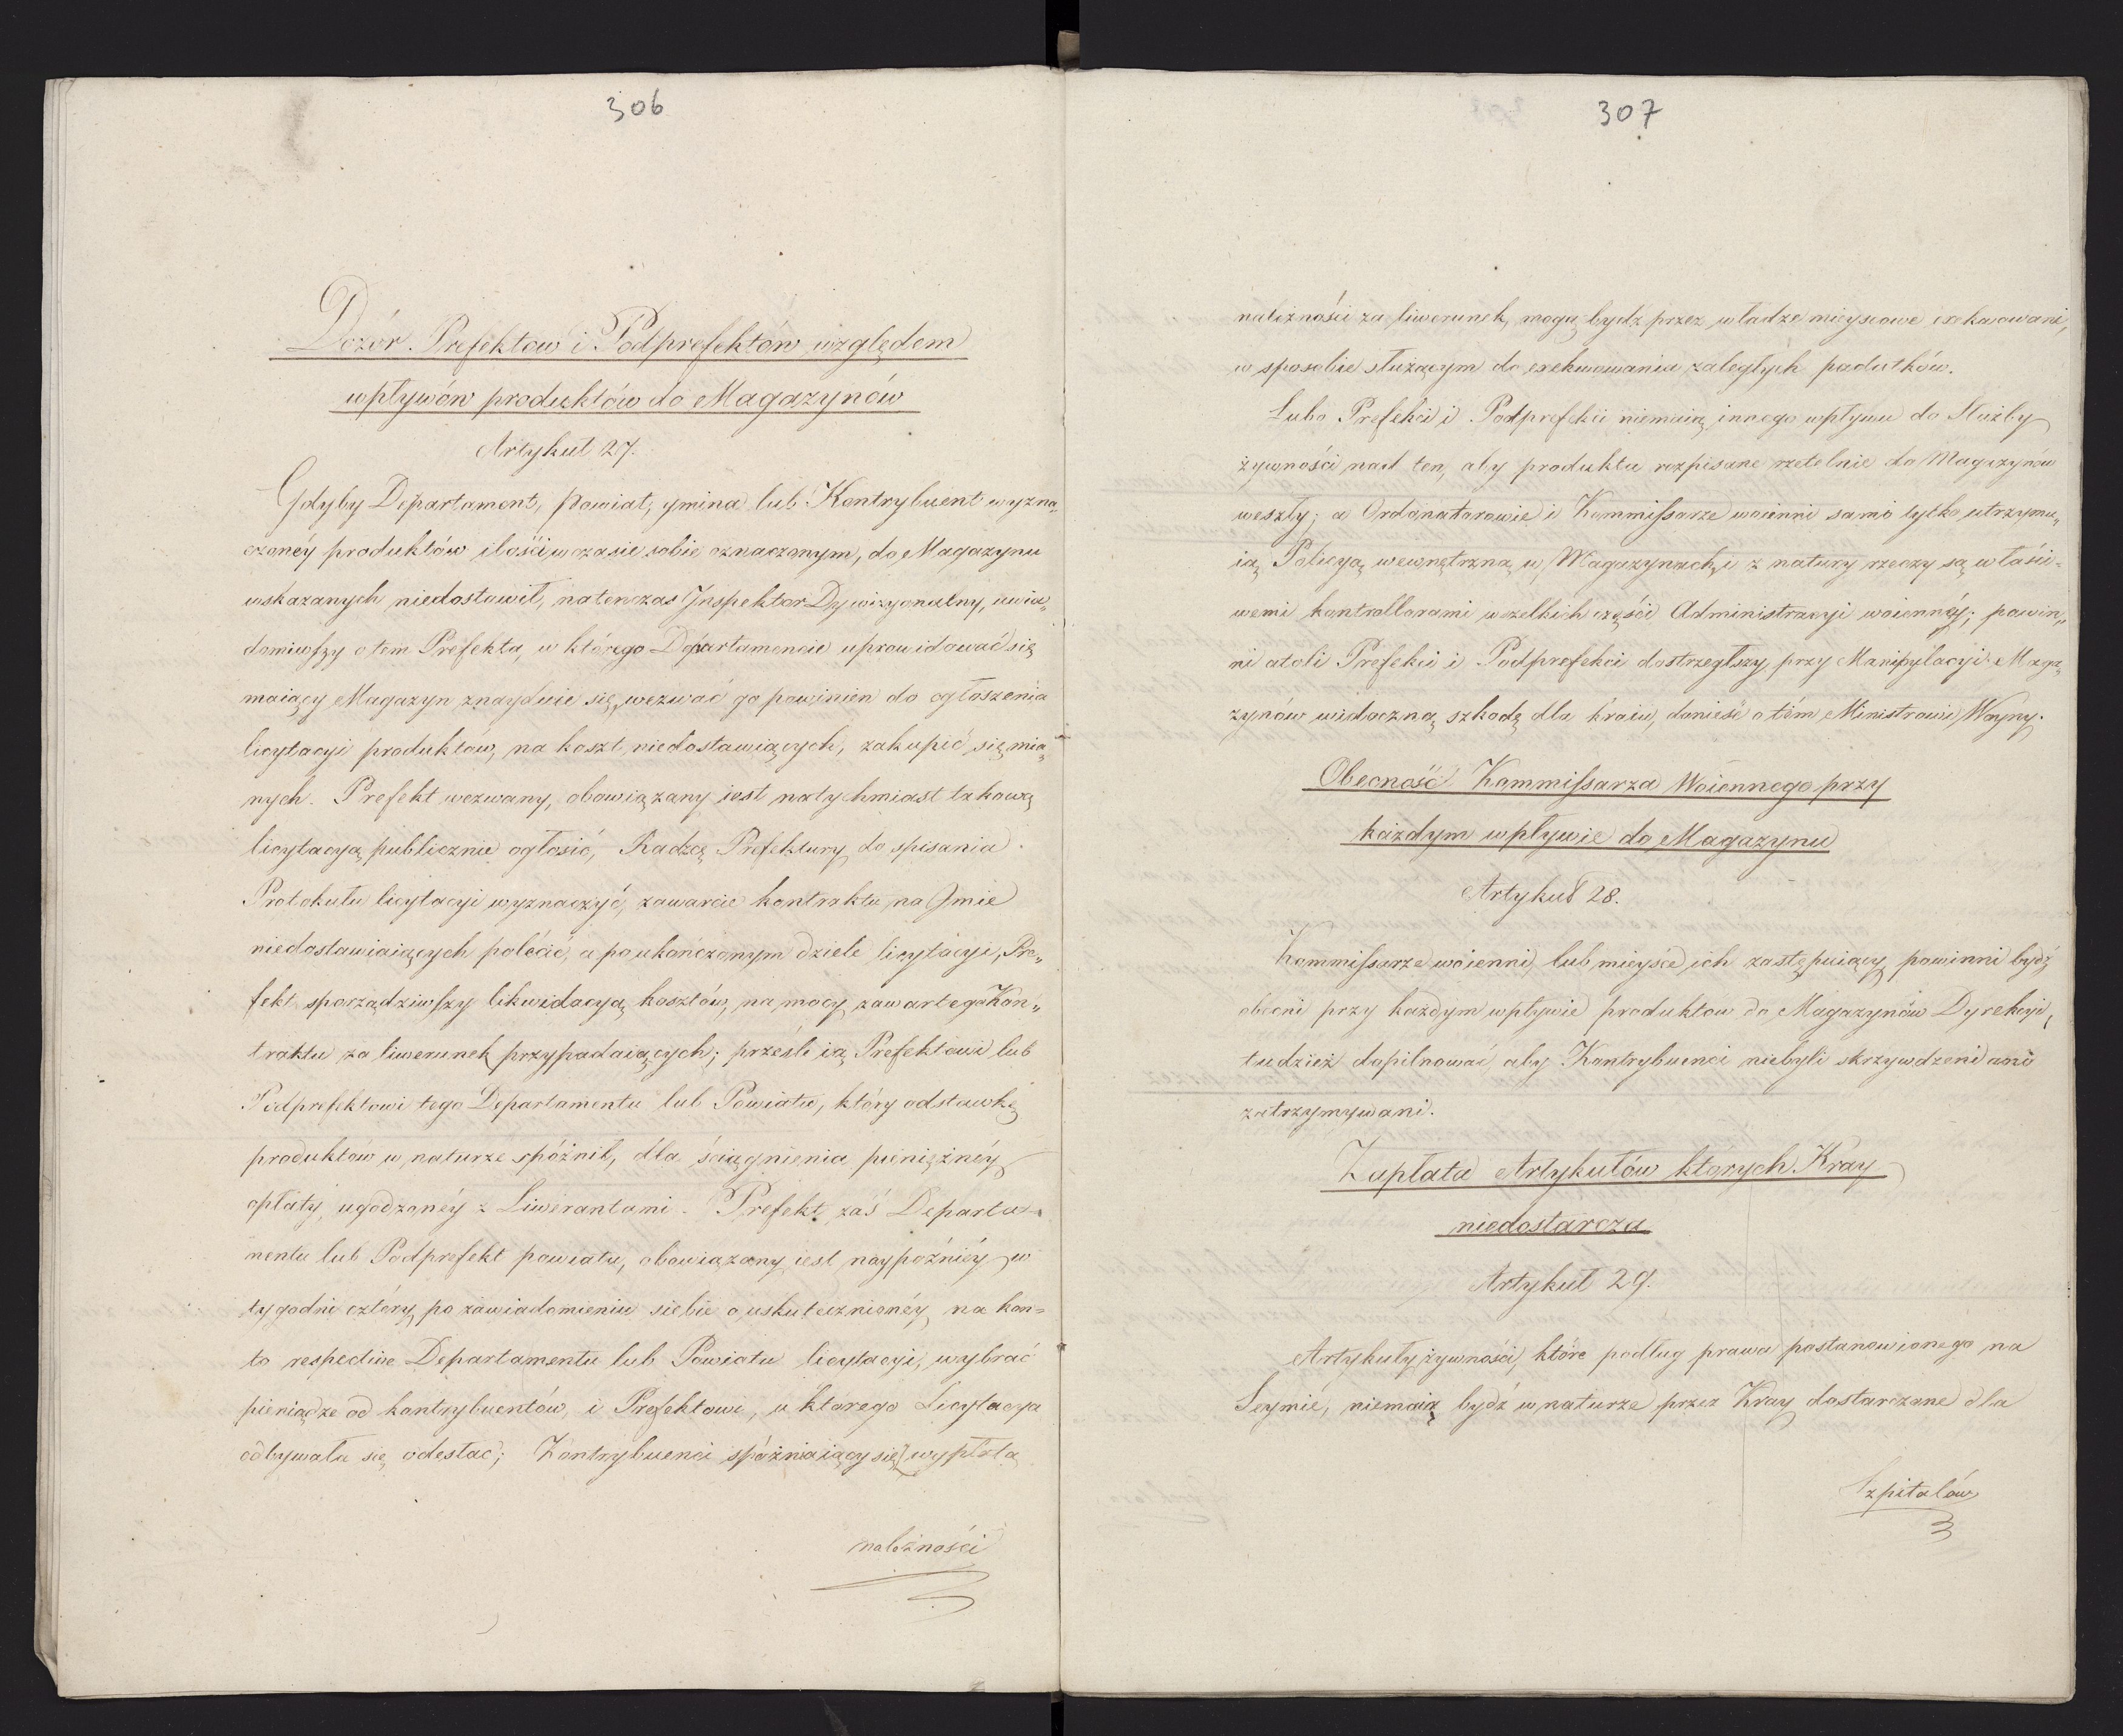 306
Dozór Prefektow i Podprefektów względem
wpływów produktów do Magazynów
Artykuł 27.
Gdyby Departament, Powiat, gmina lub Kontrybuent wyzna„
czonéy produktów ilości w czasie sobie oznaczonym, do Magazynu
wskazanych niedostawił, natenczas Inspektor Dywizyonalny, uwia„
domiwszy o tem Prefekta, w którego Departamencie uprowidować się
maiący Magazyn znayduie się, wezwać go powinien do ogłoszenia
licytacyi produktów, na koszt niedostawiących, zakupić się mia„
nych. Prefekt wezwany, obowiązany iest natychmiast takową
licytacyą publicznie ogłosić, Radzcę Prefektury do spisania
Protokułu licytacyi wyznaczyć, zawarcie kontraktu na Imie
niedostawiaiących polécić, a po ukończonym dziele licytacyi, Pre„
fekt sporządziwszy likwidacyą kosztów, na mocy zawartego Kon„
traktu za liwerunek przypadaiących; prześle ią Prefektowi lub
Podprefektowi tego Departamentu lub Powiatu, który odstawkę
produktów w naturze spóźnił, dla ściągnienia pieniężnéy
opłaty, ugodzonéy z Liwerantami. Prefekt zaś Departa„
mentu lub Podprefekt powiatu, obowiązany iest naypoźniéy w
tygodni cztéry po zawiadomieniu siebie o uskutecznionéy na kon=
to respective Departamentu lub Powiatu licytacyi, wybrać
pieniądze od kontrybuentów, i Prefektowi, u którego Licytacya
odbywała się odesłać; Kontrybuenci spóźniaiący się z wypłatą
należności
307
należności za liwerunek, mogą bydź przez władze mieyscowe exekwowani,
w sposobie służącym do exekwowania zaległych podatków.
Lubo Prefekci i Podprefekci niemaią innego wpływu do Służby
żywności nad ten, aby produkta rozpisane rzetelnie do Magazynów
weszły; a Ordonatorowie i Kommissarze woienni sami tylko utrzymu„
ią Policyą wewnętrzną w Magazynach, i z natury rzeczy są właści=
wemi kontrollorami wszelkich części Administracyi woiennéy; powin„
ni atoli Prefekci i Podprefekci dostrzegłszy przy Manipulacyi Maga„
zynów widoczną szkodę dla kraiu, donieść o tém Ministrowi Woyny.
Obecność Kommissarza Woiennego przy
każdym wpływie do Magazynu
Artykuł 28.
Kommissarze woienni, lub mieysce ich zastępuiący, powinni bydź
obecni przy każdym wpływie produktow do Magazynów Dyrekcyi,
tudzież dopilnować, aby Kontrybuenci niebyli skrzywdzeni ani
zatrzymywani.
Zapłata Artykułów ktorych Kray
niedostarcza
Artykuł 29.
Artykuły żywności, które podług prawa postanowionego na
Seymie, niemaią bydź w naturze przez Kray dostarczane dla
Szpitalów